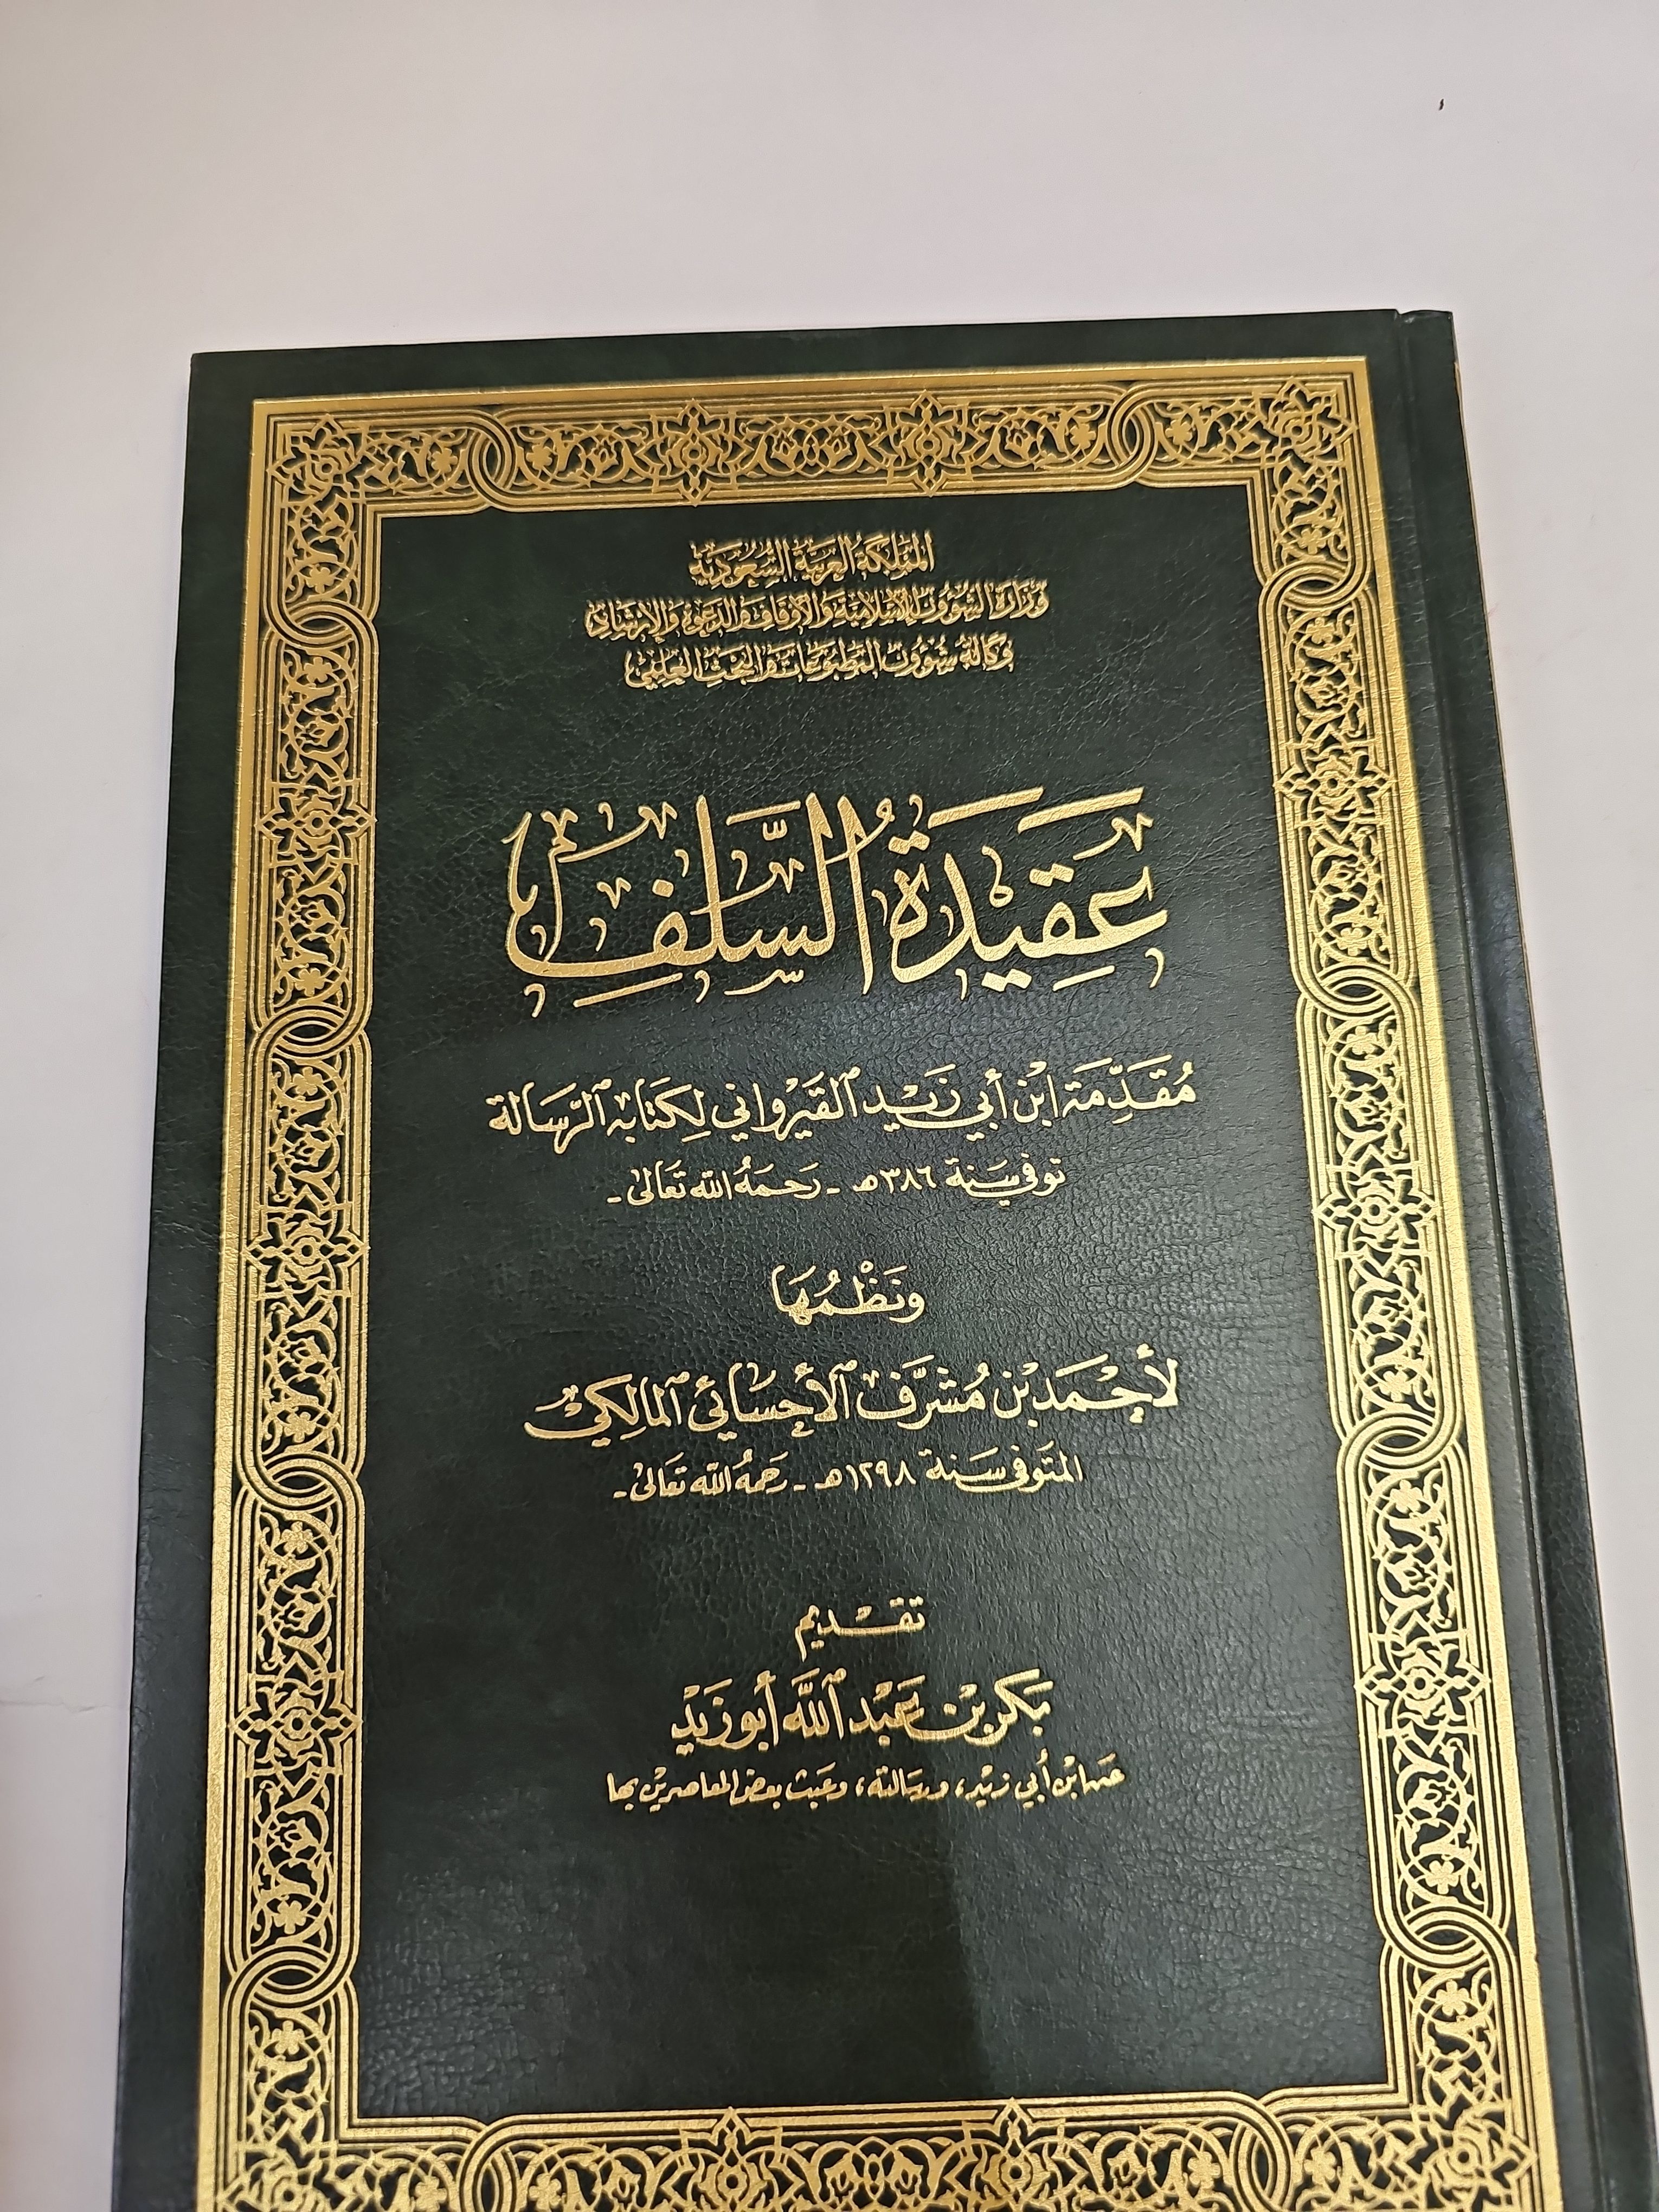 المملكة العربية السعودية
وزارة الشؤون الإسلامية والأوقاف والدعوة والإرشاد
وكالة شؤون المطبوعات والبحث العلمي
عَقِيدَةُ السَّلَفِ
مُقَدِّمَة ابْن أبي زَيْد القَيْرواني لِكتَابه الرّسَالة
توفي سَنة ٣٨٦ هـ - رَحمَهُ الله تَعَالى -
ونَظْمُهَا
لأحْمَد بْن مُشرَّف الأحسَائي المالِكي
المتَوفى سَنة ١٢٩٨ هـ - رَحمهُ الله تعَالى -
تقديم
بَكر بْن عَبْد اللَّه أبو زَيْد
عن ابْن أبي زيْد، ورسَالته، وعَبث بعض المعاصرين بها